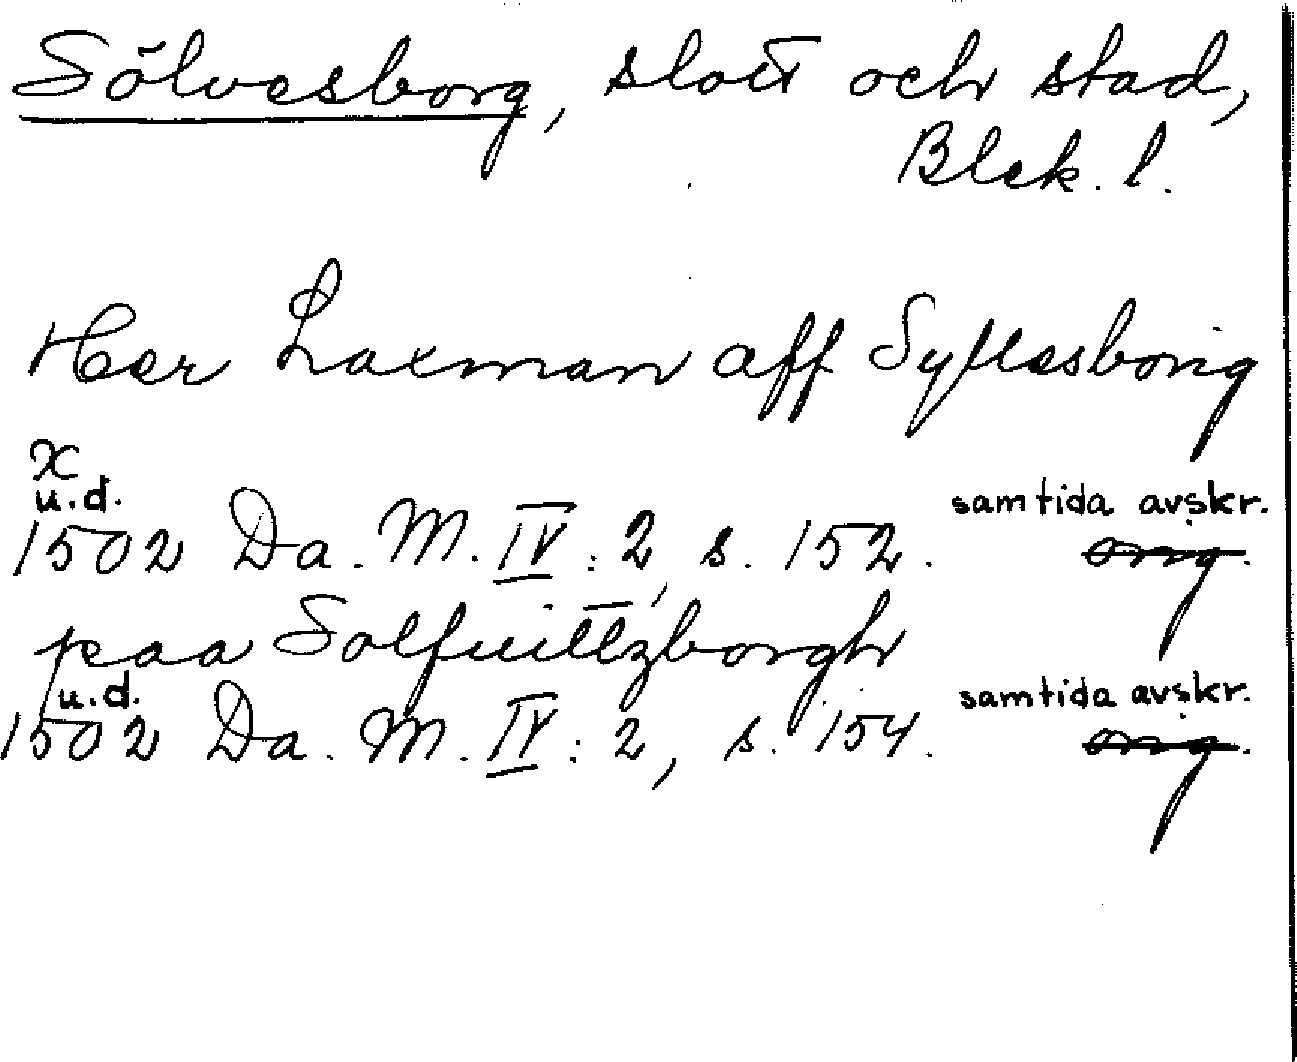 Sölvesborg, slott och stad,
Blek. l.
Her Laxman aff Syllesborig
x
u.d.
1502 Da. M. IV: 2, s. 152. samtida avskr.
orig.
paa Solfuitzborgh
u.d.
1502 Da. M. IV: 2, s. 154. samtida avskr.
orig.